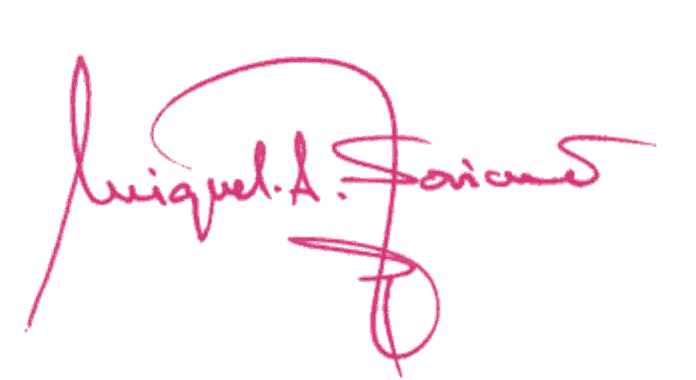 Miguel. A. Soriano